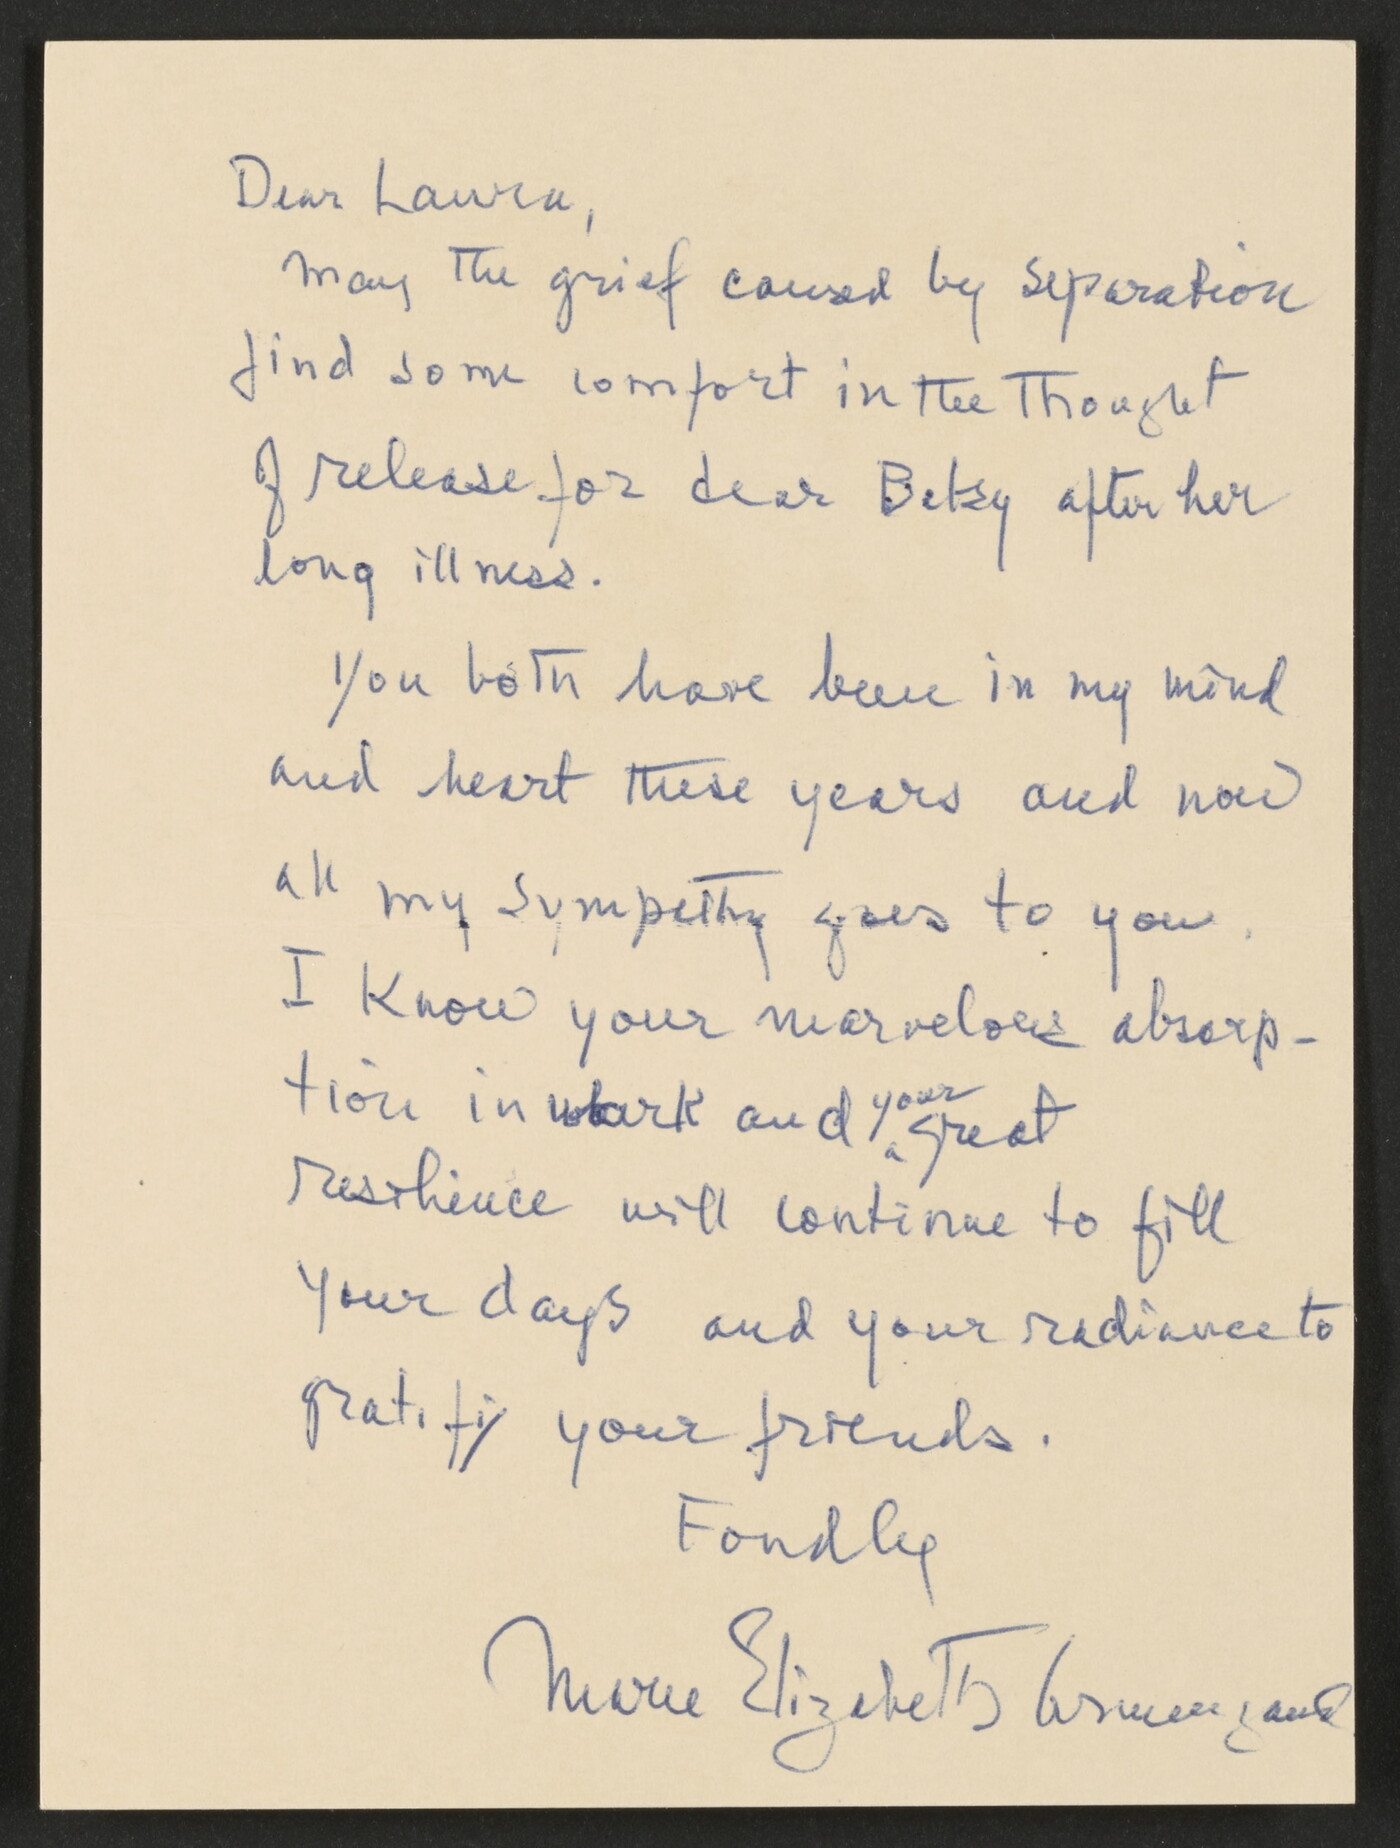 Dear Laura,
May the grief caused by separation
find some comfort in the thought
of release for dear Betsy after her
long illness.
You both have been in my mind
and heart these years and now
all my sympathy goes to you.
I know your marvelous absorp-
tion in work and your great
resilience will continue to fill
your days and your radiance to
gratify your friends.
Fondly
Marie Elizabeth